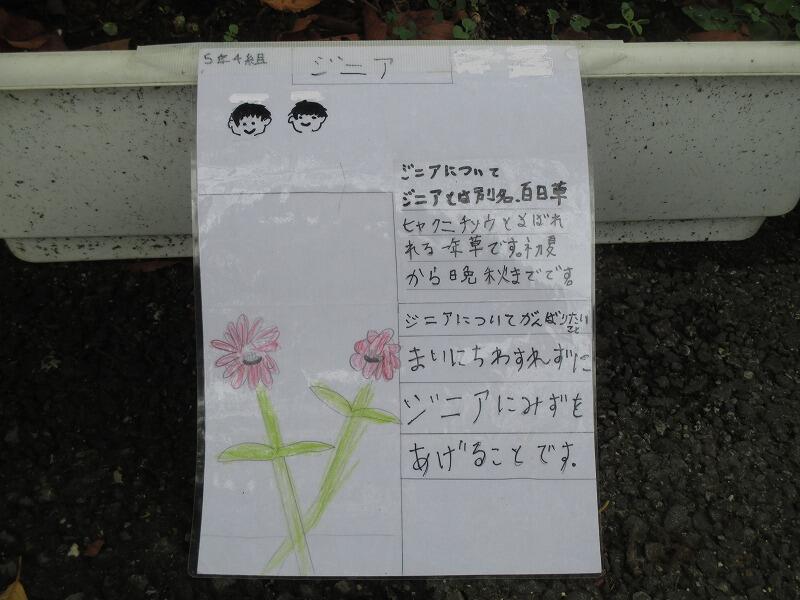 5年4組
ジニア
ジニアについて
ジニアとは別名、百日草
ヒャクニチソウとよばれ
れる一年草です。初夏
から晩秋までです。
ジニアについてがんばりたいこと
まいにちわすれずに
ジニアにみずを
あげることです。